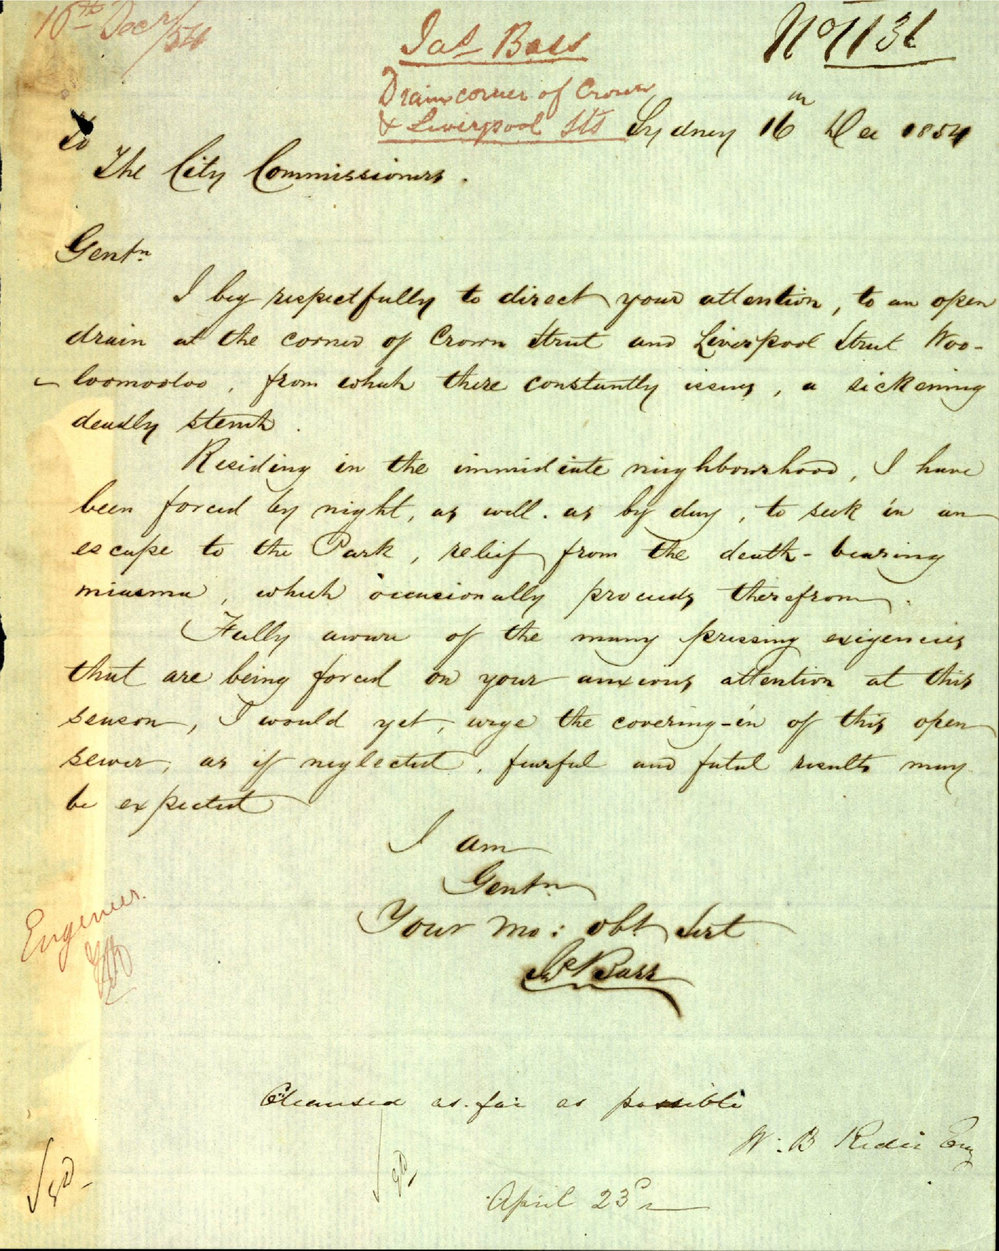 16th Decr/54
Jas Bass
No 1131
Drain corner of Crown
& Liverpool Sts
Sydney 16th Dec 1854
To
The City Commissioners.
Gentn
I beg respectfully to direct your attention, to an open
drain at the corner of Crown Street and Liverpool Street Woo-
loomooloo, from which there constantly issues, a sickening
deadly stench.
Residing in the immediate neighbourhood, I have
been forced by night, as well as by day, to seek in an
escape to the Park, relief from the death-bearing
miasma, which occasionally proceeds therefrom.
Fully aware of the many pressing exigencies
that are being forced on your anxious attention at this
season, I would yet, urge the covering-in of this open
sewer, as if neglected, fearful and fatal results may
be expected
I am
Gentn
Your mo: obt Servt
Js Bass
Engineer.
Cleansed as far as possible
W. B Rider Eng
April 23d